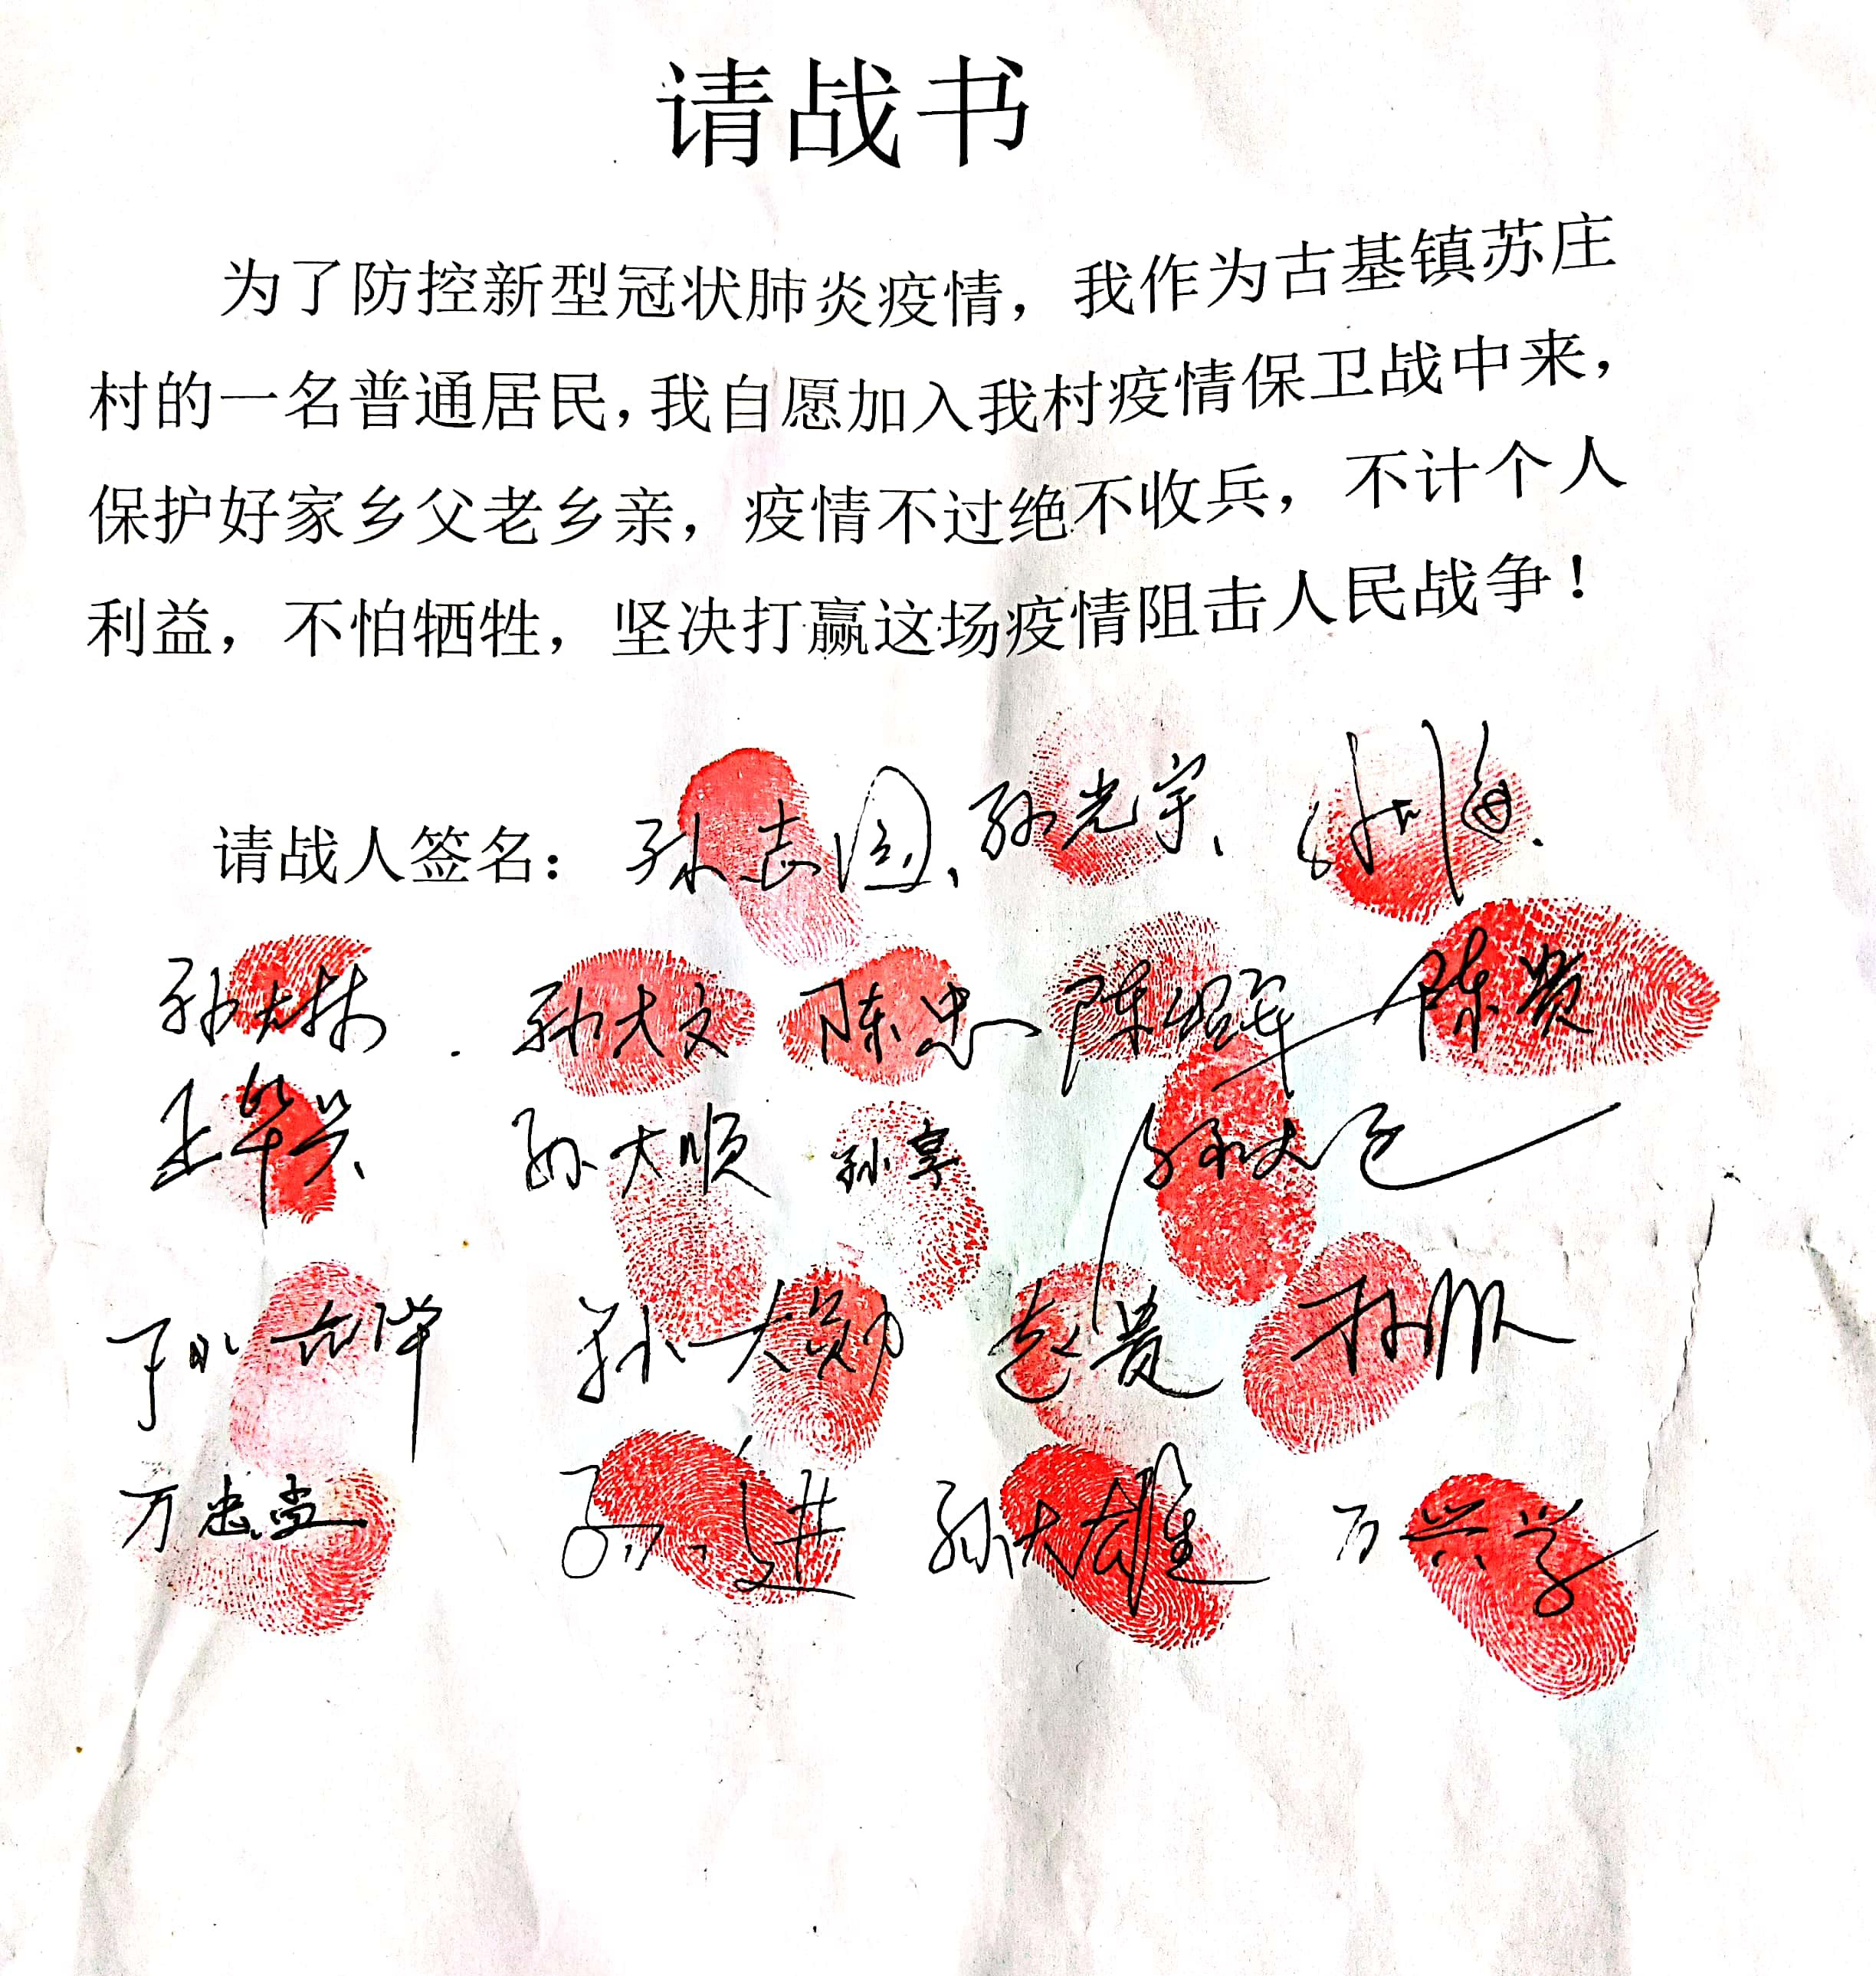 请战书
为了防控新型冠状肺炎疫情，我作为古基镇苏庄
村的一名普通居民，我自愿加入我村疫情保卫战中来，
保护好家乡父老乡亲，疫情不过绝不收兵，不计个人
利益，不怕牺牲，坚决打赢这场疫情阻击人民战争！
请战人签名：孙志国、孙光宇、
孙大林 孙大文 陈忠 陈绍军 陈贤
王华兴 孙大顺 孙享
孙大勋 袁贵
万忠堂 孙进 孙大雄 万兴学